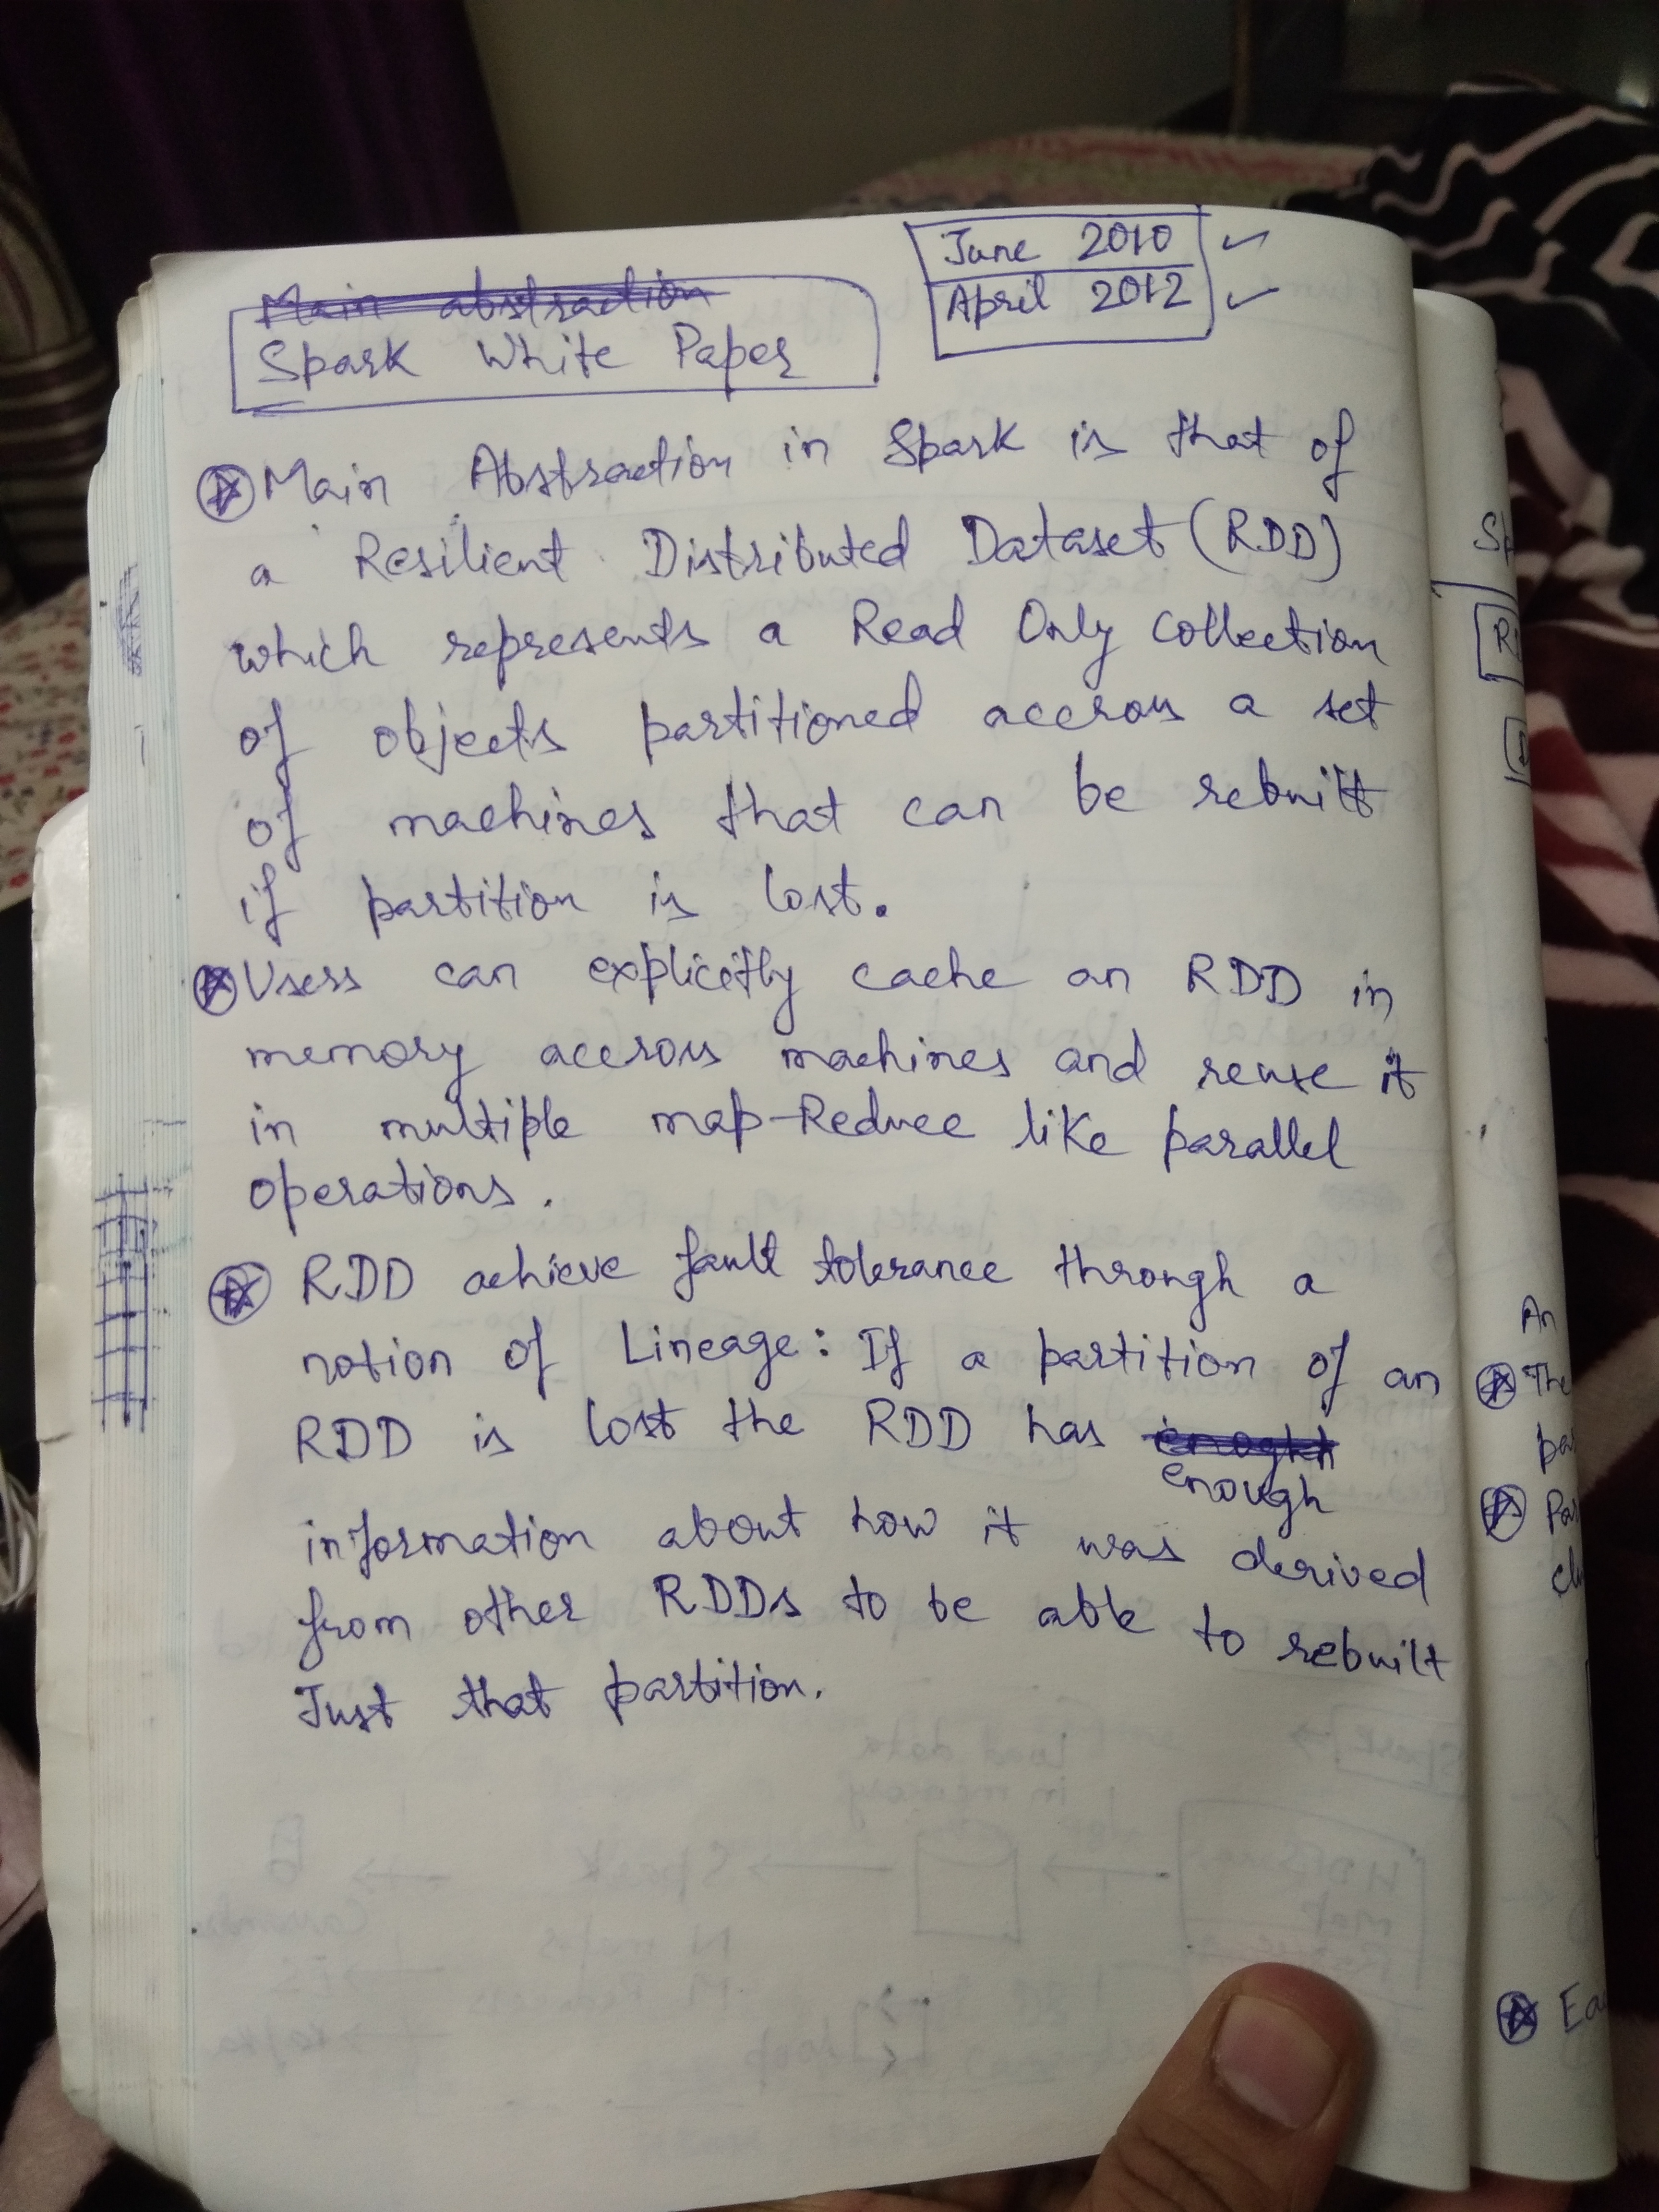 June 2010
April 2012
Main abstraction
Spark White Paper
Main Abstraction in Spark is that of
a Resilient Distributed Dataset (RDD)
which represents a Read Only Collection
of objects partitioned accross a set
of machines that can be rebuilt
if partition is lost.
Users can explicitly cache an RDD in
memory accross machines and reuse it
in multiple map-Reduce like parallel
operations.
RDD achieve fault tolerance through a
notion of Lineage: If a partition of an
RDD is lost the RDD has
enough
information about how it was derived
from other RDDs to be able to rebuilt
Just that partition.
An
The